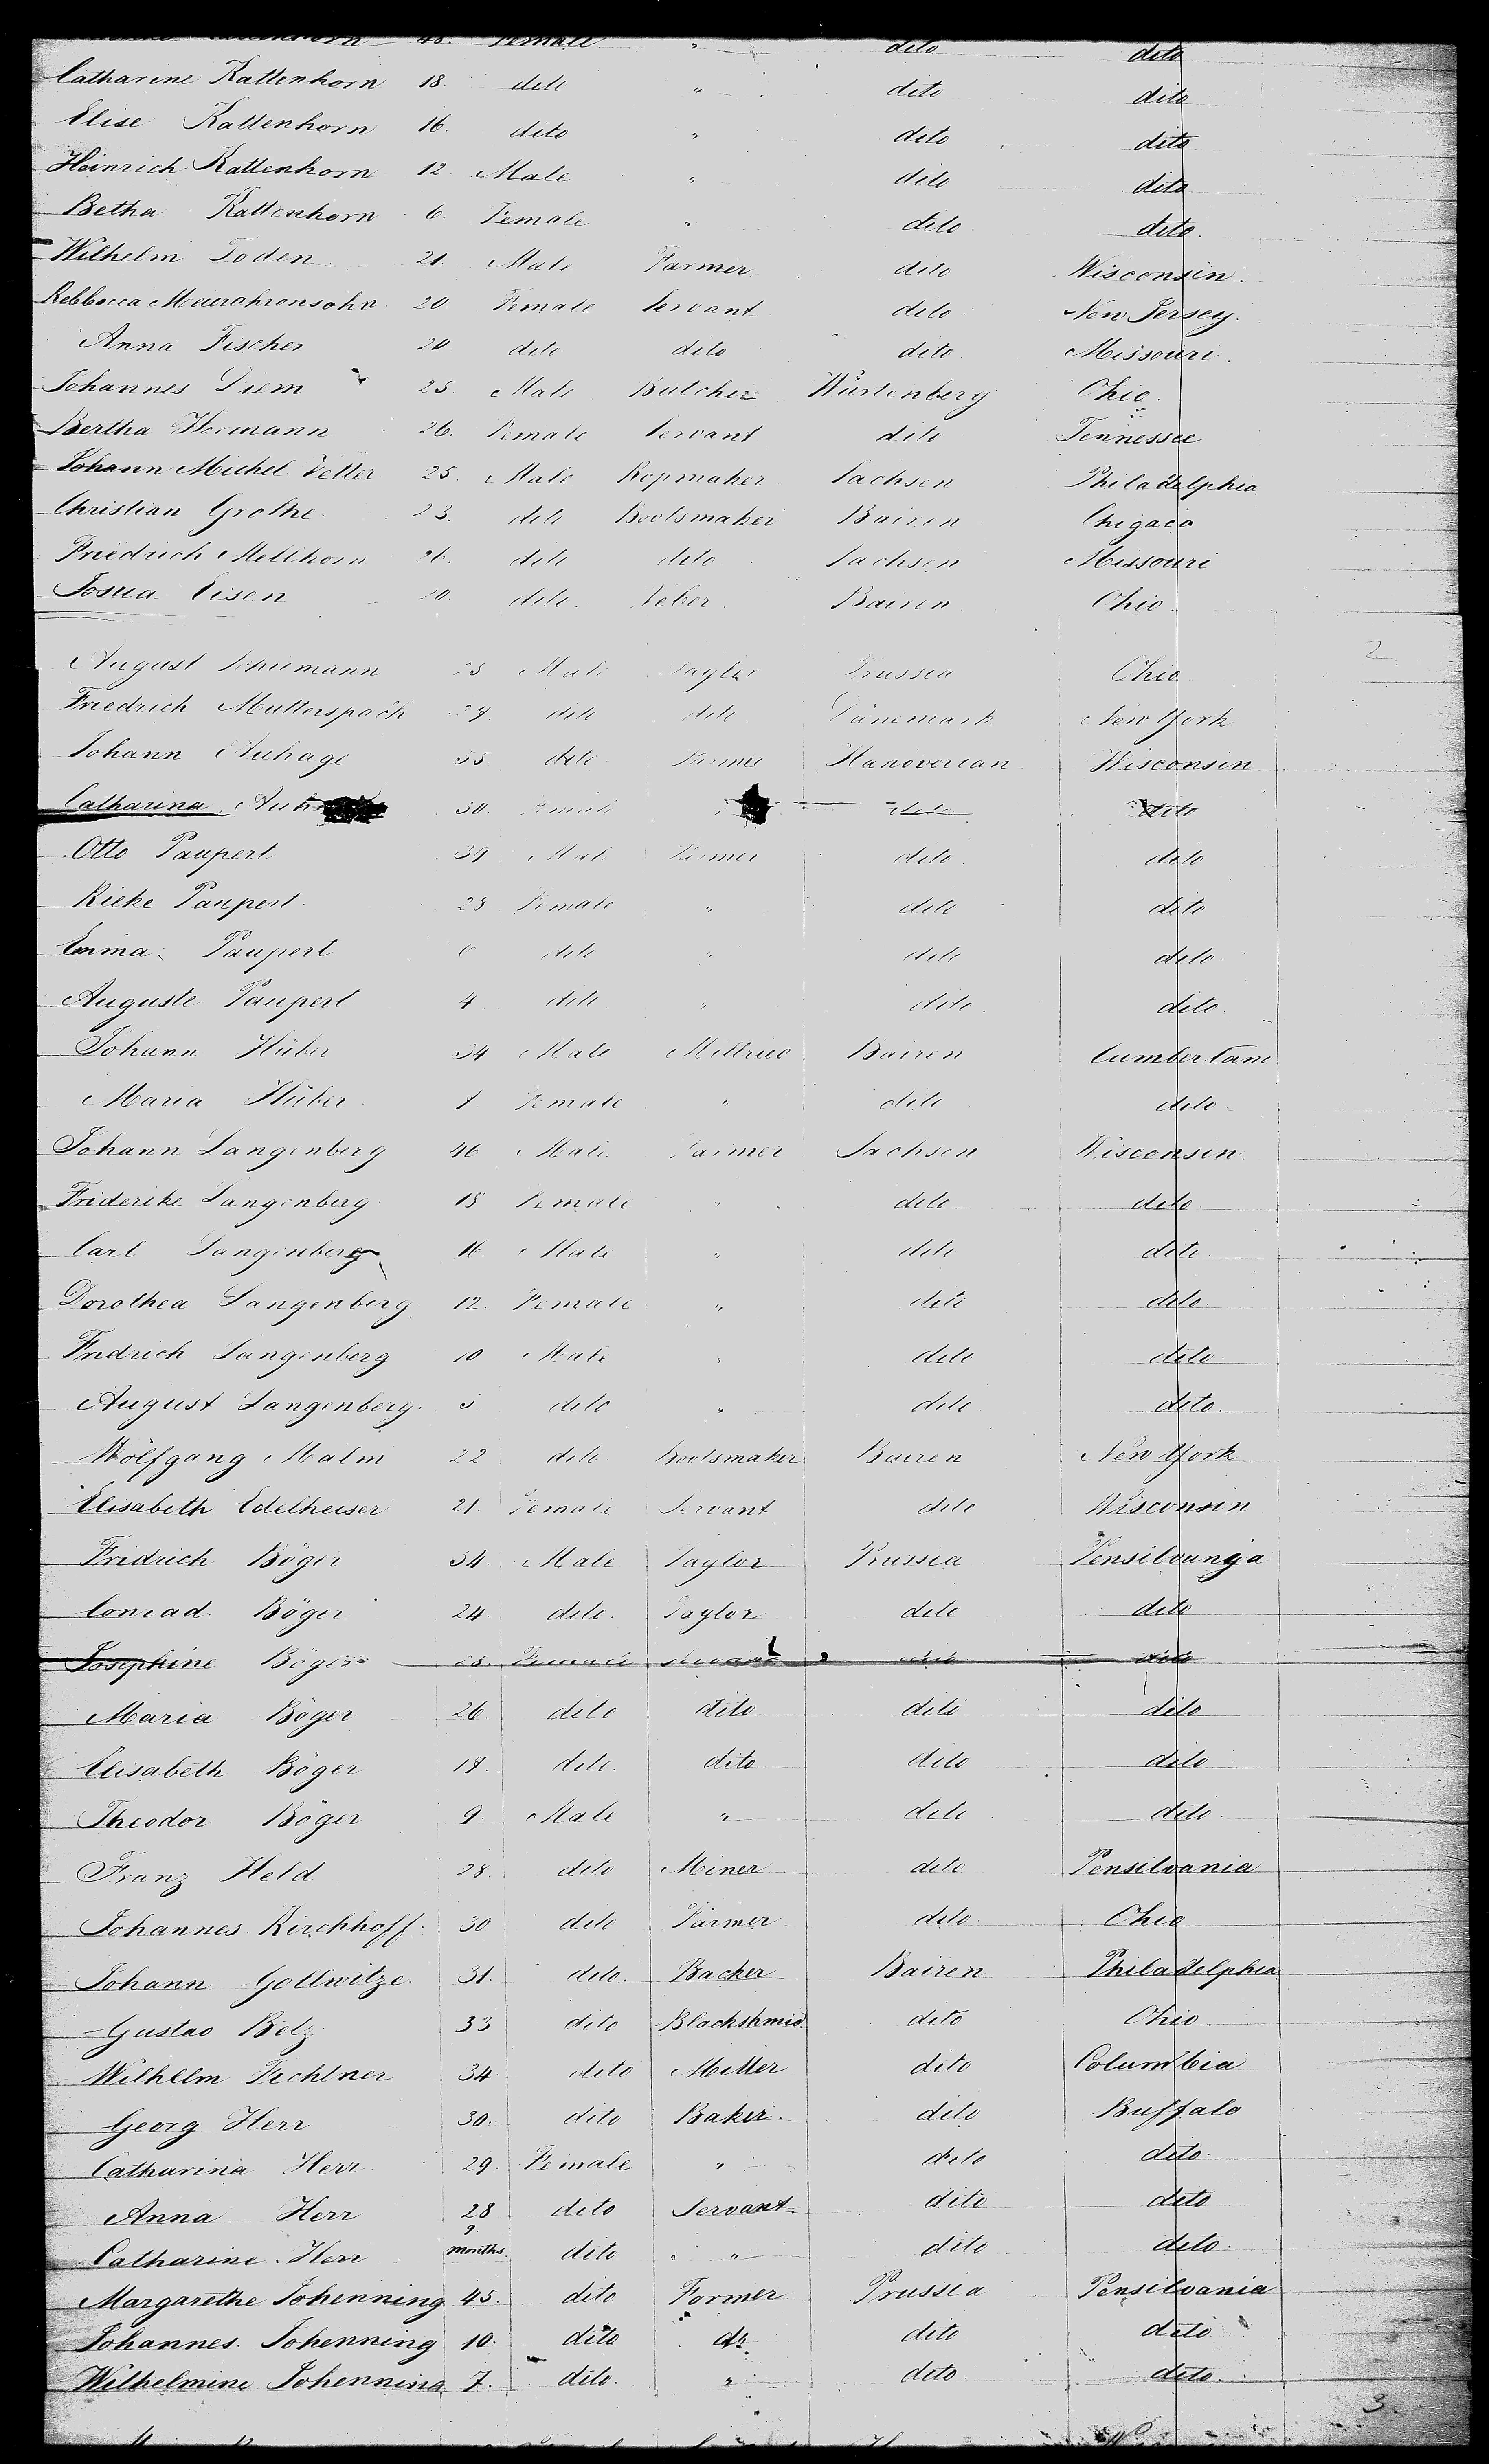 48. Female " dito dito
Catharine Kattenhorn 18. dito " dito dito
Elise Kattenhorn 16. dito " dito dito
Heinrich Kattenhorn 12 Male " dito dito
Betha Kattenhorn 6. Female " dito dito.
Wilhelm Toden 21. Male Farmer dito Wisconsin.
Rebbocca 20 Female Servant dito New Jersey.
Anna Fischer 20 dito dito dito Missouri.
Johannes Diem 25. Male Butcher Würtenberg Ohio.
Bertha Hermann 26. Female Servant dito Tennessee
Johann Michel Vetter 25. Male Ropmaker Sachsen Philadelphia
Christian Grothe. 23. dito Bootsmaker Bairen Chigaco
Friedrich Mellhorn dito dito Sachsen Missouri
Josua Eisen dito. Bairen Ohio.
August Schumann Male Taylor Prussia Ohio 2
Friedrich Mutterspach dito dito Dänemark New York
Johann Auhage 55. dito Farmer Hanoverian Wisconsin
Catharina 50 Female dito dito
Otto Paupert 39 Male Farmer dito dito
Rieke Paupert 28 Female " dito dito
Emma Paupert 6 dito " dito dito.
Auguste Paupert 4 dito " dito. dito.
Johann Hüber 34 Male Bairen Cumberland
Maria Hüber 1. Female " dito dito.
Johann Langenberg 46 Male Farmer Sachsen Wisconsin
Friderike Langenberg 18 Female " dito dito
Carl Langenberg 16 Male " dito dito
Dorothea Langenberg 12. Female " dito dito.
Fridrich Langenberg 10 Male " dito dito.
August Langenberg. 5 dito " dito dito.
Wolfgang Malm 22 dito Bootsmaker Bairen New York
Elisabeth Edelheiser 21. Female Servant dito Wisconsin
Fridrich Böger 34. Male Taylor Prussia Pensilvanja
Conrad Böger 24. dito. Taylor dito dito
Josephine Böger 28. Female Servant dito dito
Maria Böger 26 dito dito dito dito
Elisabeth Böger dito. dito dito dito
Theodor Böger 9. Male " dito dito.
Franz Held 28. dito Miner dito Pensilvania
Johannes Kirchhoff. 30 dito Farmer dito Ohio
Johann Gollwitze 31. dito. Backer Bairen Philadelphia
Gustav Betz 33 dito Blackshmid dito Ohio
Wilhelm Fechtner 34. dito Miller dito Columbia
Georg Herr 30. dito Baker. dito Buffalo
Catharina Herr 29. Female " dito dito.
Anna Herr 28 dito Servant dito dito
Catharine Herr 9. Months dito " dito dito.
Margarethe Johenning 45. dito Former Prussia Pensilvania
Johannes. Johenning 10. dito do. dito dito
Wilhelmine Johenning 7. dito. " dito dito.
3.